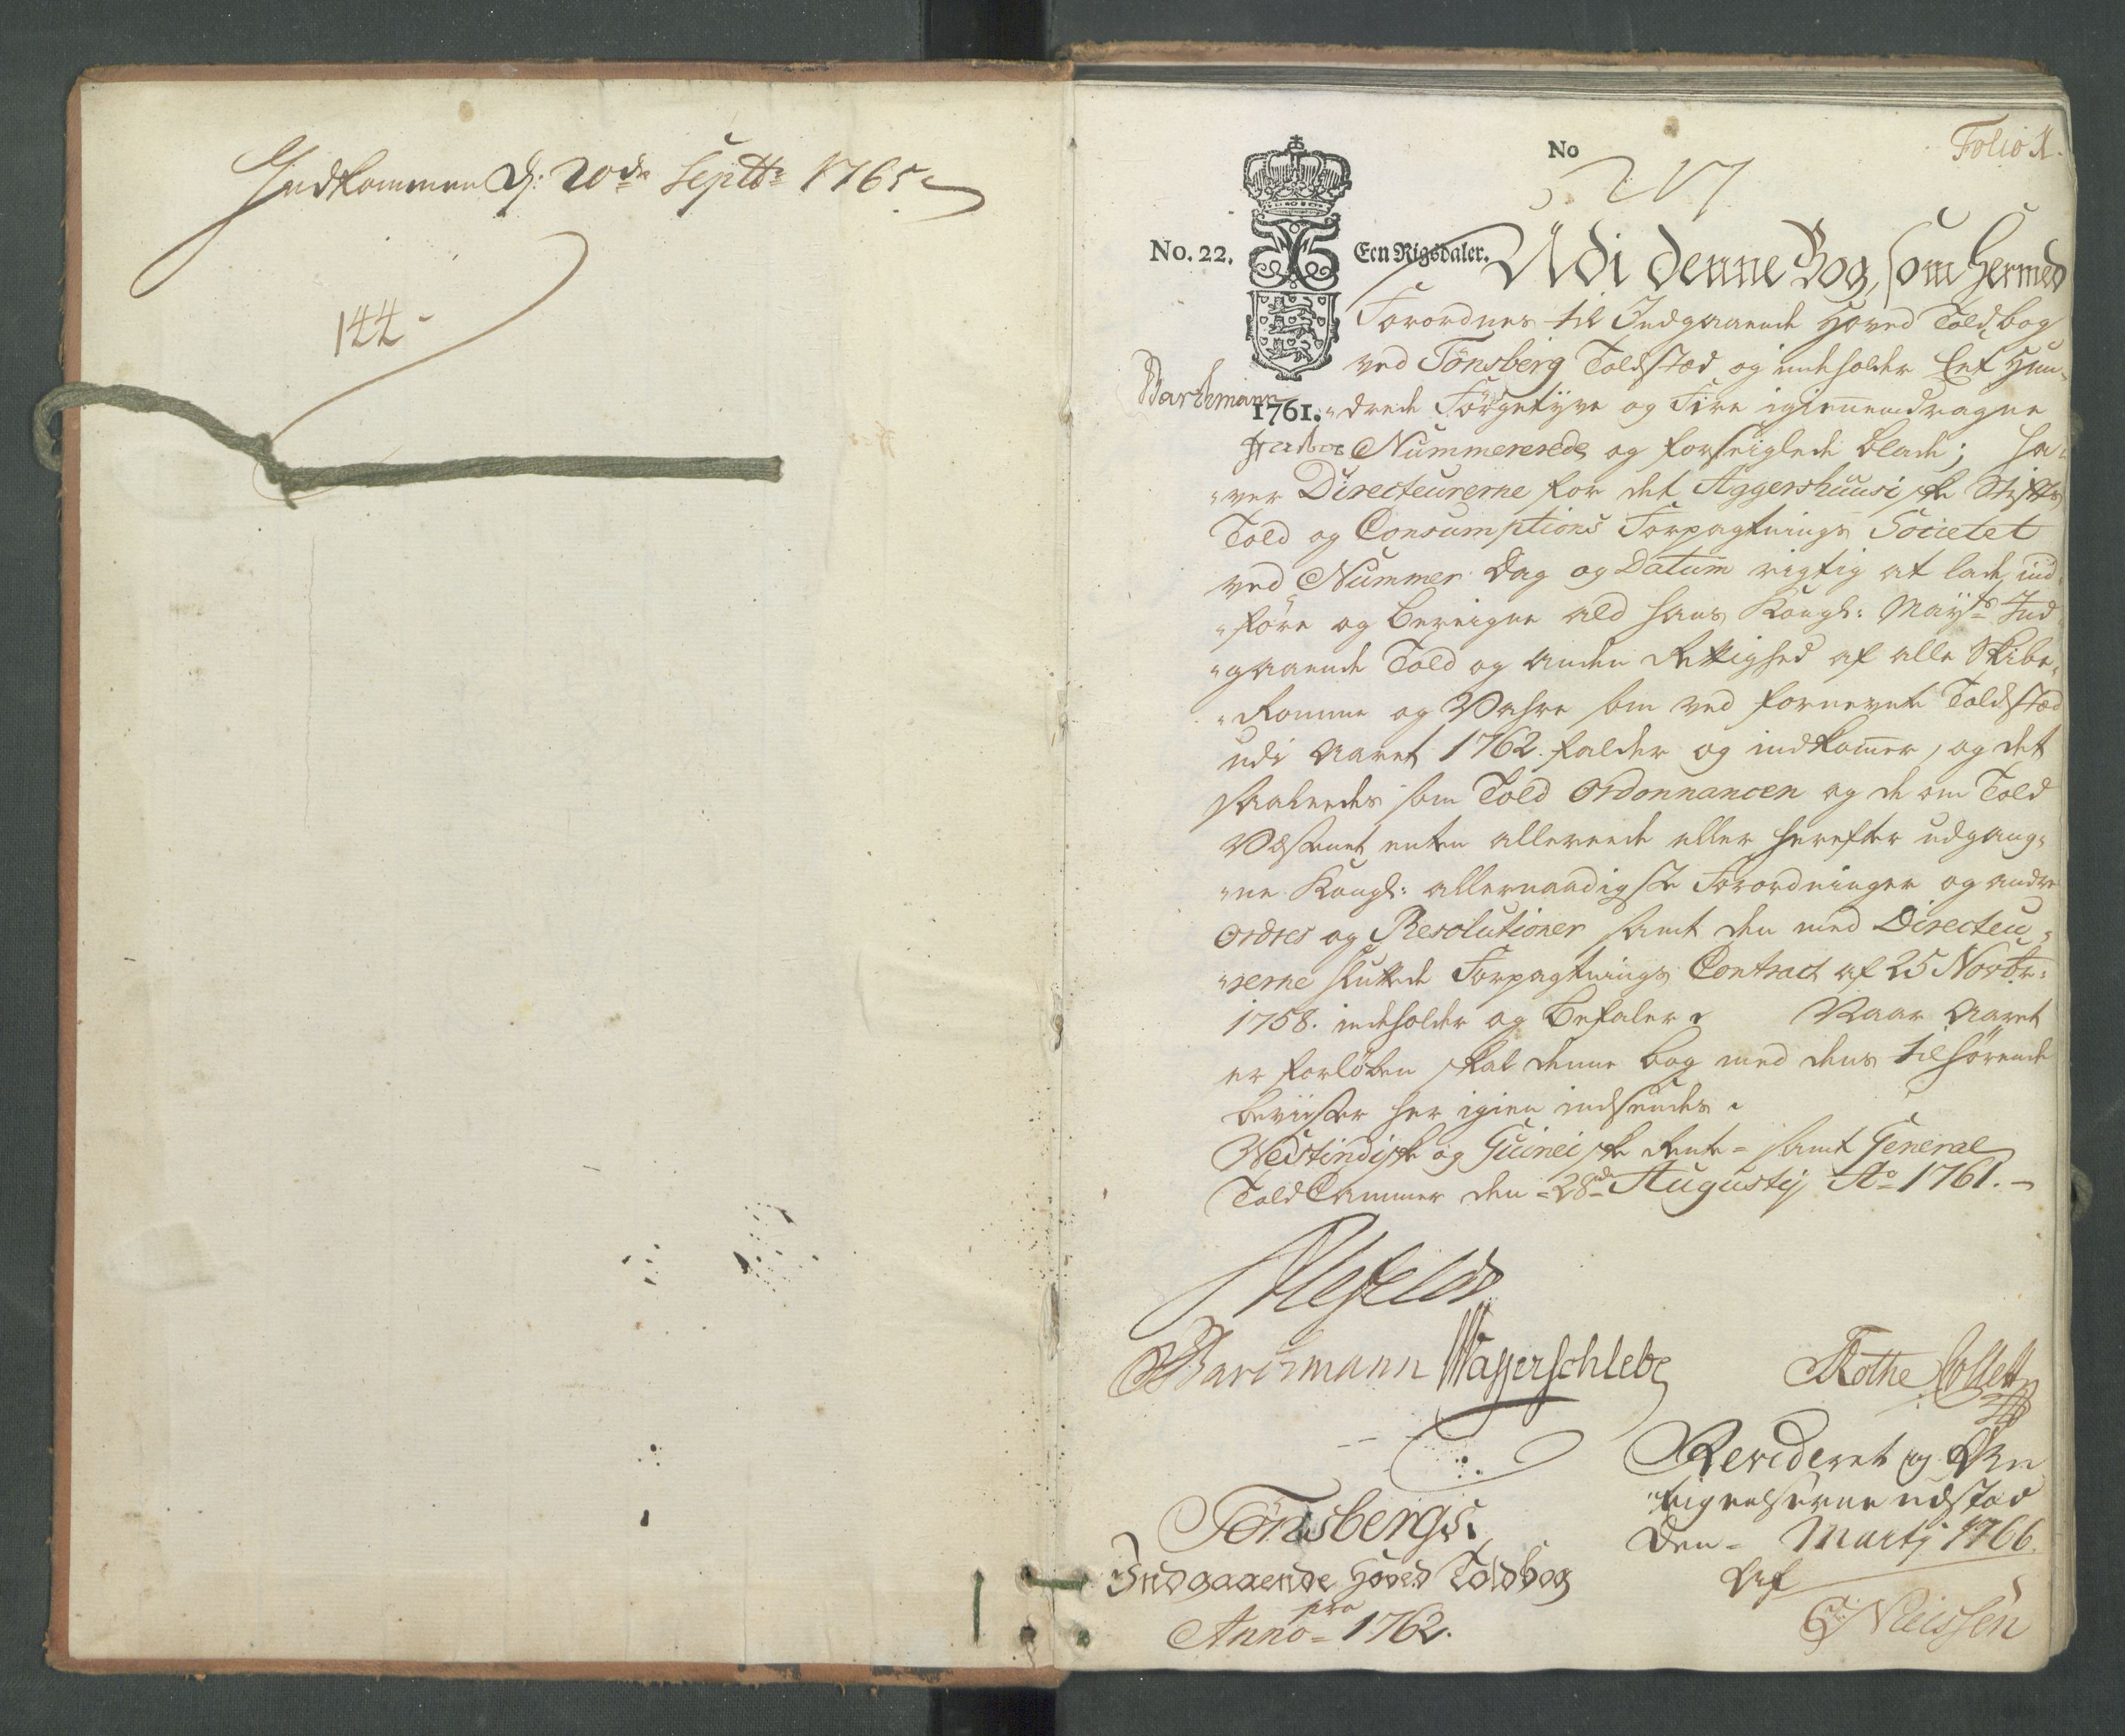 Indkommen d: 20de Septbr 1765
144
Folio 1.
No
217
No. 22.
Een Rigsdaler.
1761.
Barthmann
Udi denne Bog, som Hermed
Forordnes til Indgaaende Hoved Toldbog
ved Tönsberg Toldsted og indeholder Eet Hun-
drede Förgetyve og Fire igiennemdragne
Nummererede og forseiglede blade; ha-
ver Directeurerne for det Aggershuusiske Stifts
Told og Consumptions Forpagtnings Societet
ved Nummer Dag og Datum rigtig at lade ind-
före og beregne ald hans Kongl: Mayts Ind-
gaaende Told og anden Rettighed af alle Skibe-
Romme og Vahre som ved fornevnte Toldsted
udi Aaret 1762. falder og indkomer, og det
saaledes som Told Ordonnancen og de om Told
Væsenet enten allereede eller herefter udgang-
ne Kongl: allernaadigste Forordninger og andre
Ordres og Resolutioner samt den med Directeu-
rerne sluttede Forpagtnings Contract af 25 Novbr:
1758. indeholder og befaler. Naar Aaret
er forlöben skal denne bog med dens tilhörende
beviiser her igien indsendes.
Westindiske og Guineiske Rente- samt General
Told Cammer den 28de Augustij Ao 1761.
Ahlefeldt
Barthmann Wasserschlebe Rothe Collett
Tönsbergs
Indgaaende Hoved Toldbog
pro
Anno 1762.
Revideret og An-
tegnelserne udsted
den Martj 1766.
Af
Nicissen